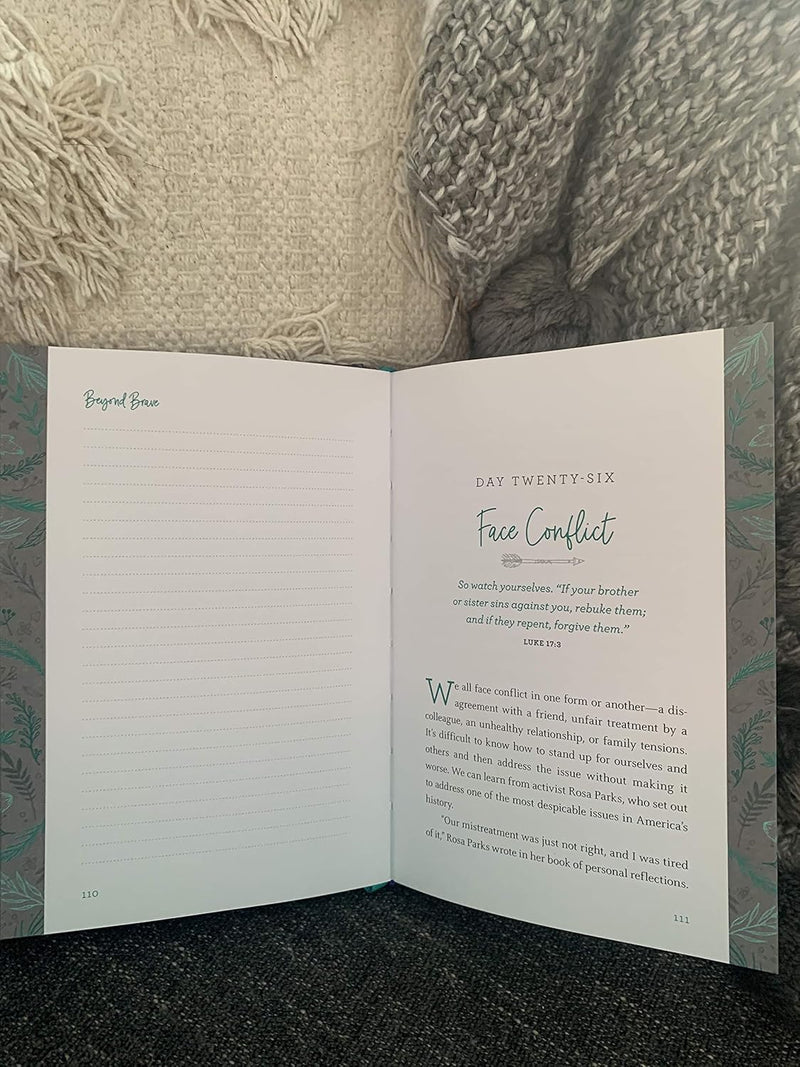 Beyond Brave
110
DAY TWENTY-SIX
Face Conflict
So watch yourselves. “If your brother
or sister sins against you, rebuke them;
and if they repent, forgive them.”
LUKE 17:3
We all face conflict in one form or another—a dis-
agreement with a friend, unfair treatment by a
colleague, an unhealthy relationship, or family tensions.
It’s difficult to know how to stand up for ourselves and
others and then address the issue without making it
worse. We can learn from activist Rosa Parks, who set out
to address one of the most despicable issues in America’s
history.
“Our mistreatment was just not right, and I was tired
of it,” Rosa Parks wrote in her book of personal reflections.
111